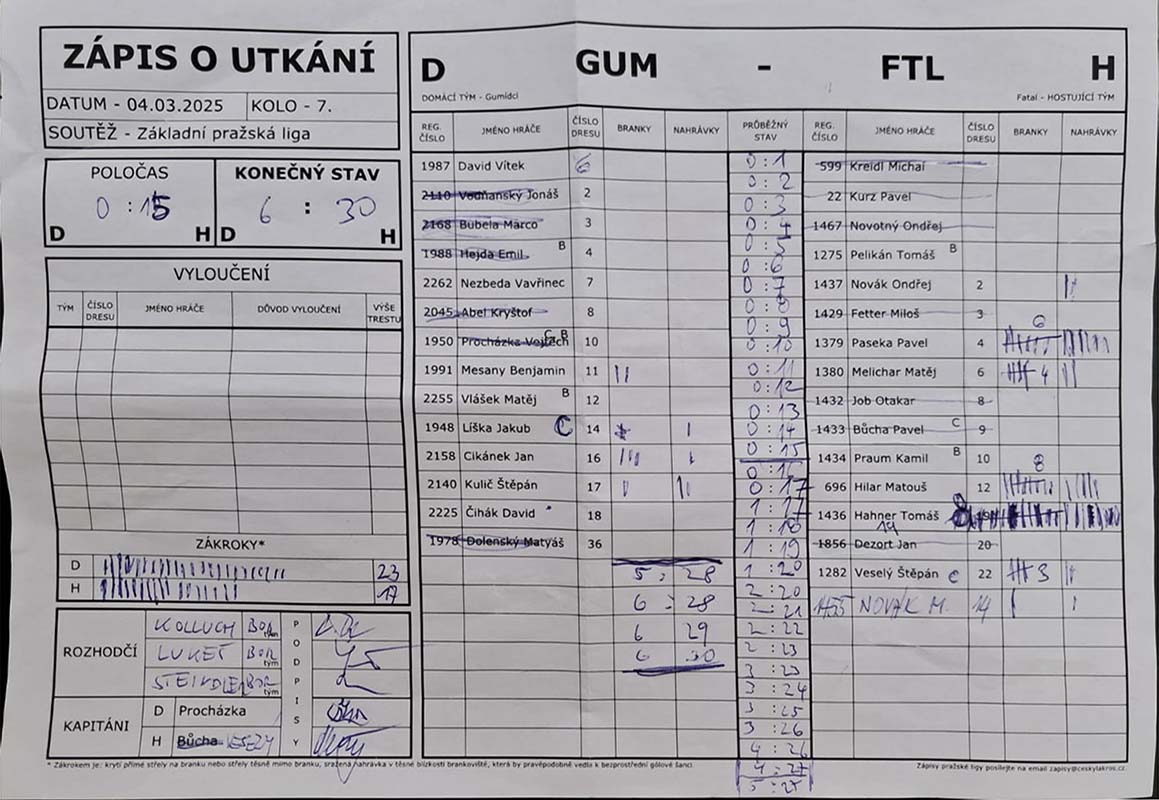 ZÁPIS O UTKÁNÍ
DATUM - 04.03.2025 KOLO - 7.
SOUTĚŽ - Základní pražská liga
POLOČAS KONEČNÝ STAV
0 : 15 6 : 30
D H D H
VYLOUČENÍ
TÝM ČÍSLO DRESU JMÉNO HRÁČE DŮVOD VYLOUČENÍ VÝŠE TRESTU
ZÁKROKY*
D 23
H 17
ROZHODČÍ
KOLLUCH BOR tým
LUKEŠ BOR tým
STEINDLER BOR tým
PODPISY
KAPITÁNI
D Procházka
H Bůcha VESELÝ
D GUM - FTL H
DOMÁCÍ TÝM - Gumídci Fatal - HOSTUJÍCÍ TÝM
REG. ČÍSLO JMÉNO HRÁČE ČÍSLO DRESU BRANKY NAHRÁVKY PRŮBĚŽNÝ STAV REG. ČÍSLO JMÉNO HRÁČE ČÍSLO DRESU BRANKY NAHRÁVKY
1987 David Vítek 6
2110 Vodňanský Jonáš 2
2168 Bubela Marco 3
1988 Hejda Emil B 4
2262 Nezbeda Vavřinec 7
2045 Abel Kryštof 8
1950 Procházka Vojtěch C B 10
1991 Mesany Benjamin 11 II
2255 Vlášek Matěj B 12
1948 Líška Jakub C 14 I
2158 Cikánek Jan 16 III I
2140 Kulič Štěpán 17 I II
2225 Čihák David 18
1978 Dolenský Matyáš 36
5 : 28
6 : 28
6 29
6 30
0 : 1
0 : 2
0 : 3
0 : 4
0 : 5
0 : 6
0 : 7
0 : 8
0 : 9
0 : 10
0 : 11
0 : 12
0 : 13
0 : 14
0 : 15
0 : 16
0 : 17
1 : 17
1 : 18
1 : 19
1 : 20
2 : 20
2 : 21
2 : 22
2 : 23
3 : 23
3 : 24
3 : 25
3 : 26
4 : 26
4 : 27
599 Kreidl Michal
22 Kurz Pavel
1467 Novotný Ondřej
1275 Pelikán Tomáš B
1437 Novák Ondřej 2 II
1429 Fetter Miloš 3
1379 Paseka Pavel 4 6
1380 Melichar Matěj 6 4 II
1432 Job Otakar 8
1433 Bůcha Pavel C 9
1434 Praum Kamil B 10
696 Hilar Matouš 12 8
1436 Hahner Tomáš 19
1856 Dezort Jan 20
1282 Veselý Štěpán C 22 3 II
NOVÁK M. 14 I I
* Zákrokem je: krytí přímé střely na branku nebo střely těsně mimo branku, sražená nahrávka v těsné blízkosti brankoviště, která by pravděpodobně vedla k bezprostřední gólové šanci.
Zápisy pražské ligy posílejte na email zapisy@ceskylakros.cz.